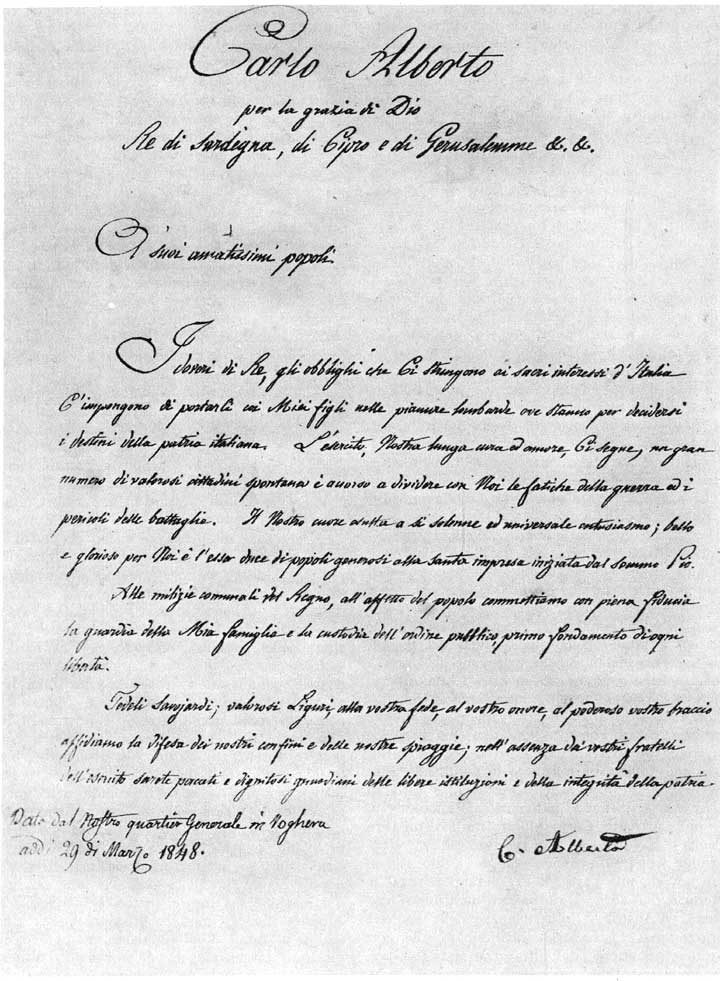 Carlo Alberto
per la grazia di Dio
Re di Sardegna, di Cipro e di Gerusalemme &. &.
A' suoi amatissimi popoli.
I doveri di Re, gli obblighi che Ci stringono ai sacri interessi d'Italia
C'impongono di portarci coi Miei figli nelle pianure lombarde ove stanno per decidersi
i destini della patria italiana. L'esercito, Nostra lunga cura ed amore, Ci segue, un gran
numero di valorosi cittadini spontaneo è accorso a dividere con Noi le fatiche della guerra ed i
pericoli delle battaglie. Il Nostro cuore esulta a sì solenne ed universale entusiasmo; bello
e glorioso per Noi è l'esser duce di popoli generosi alla santa impresa iniziata dal sommo Pio.
Alle milizie comunali del Regno, all'affetto del popolo commettiamo con piena fiducia
la guardia della Mia famiglia e la custodia dell'ordine pubblico, primo fondamento di ogni
libertà.
Fedeli Savojardi; valorosi Liguri, alla vostra fede, al vostro onore, al poderoso vostro braccio
affidiamo la difesa dei nostri confini e delle nostre spiaggie; nell'assenza da' vostri fratelli
dell'esercito sarete pacati e dignitosi guardiani delle libere istituzioni e della integrità della patria.
Dato dal Nostro quartier Generale in Voghera
addì 29 di Marzo 1848.
C. Alberto